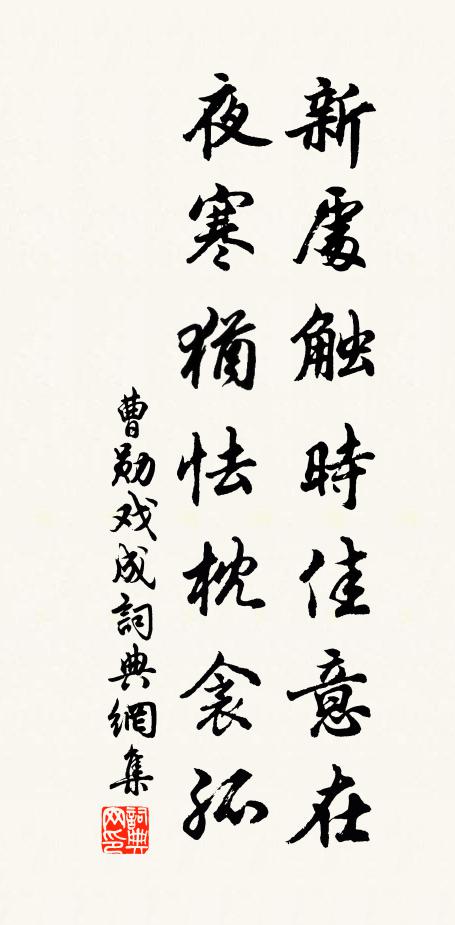 新處触時佳意在
夜寒猶怯枕衾孤
曹勛戏成詞典網集
詞典网印